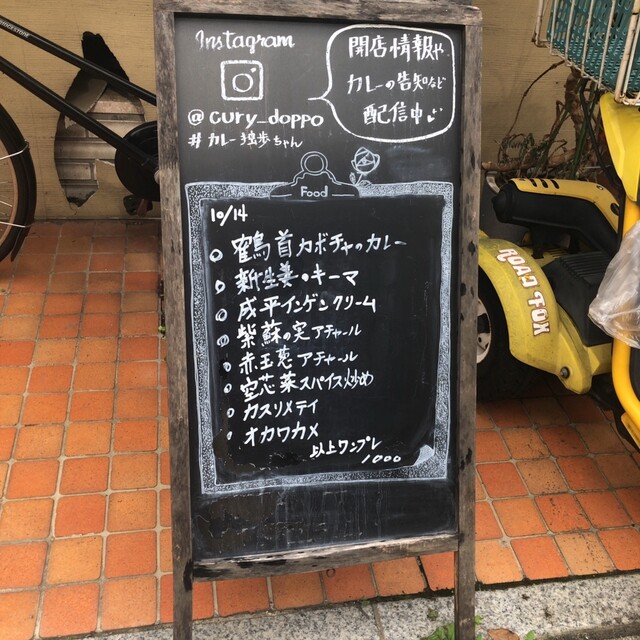 Instagram
@cury_doppo
#カレー独歩ちゃん
開店情報や
カレーの告知など
配信中
Food
10/14
○鶴首カボチャのカレー
○新生姜・キーマ
○成平インゲンクリーム
○紫蘇の実アチャール
○赤玉葱アチャール
○空芯菜スパイス炒め
○カスリメティ
○オカワカメ
以上ワンプレ
1000
BRIDGESTONE
ROAD FOX